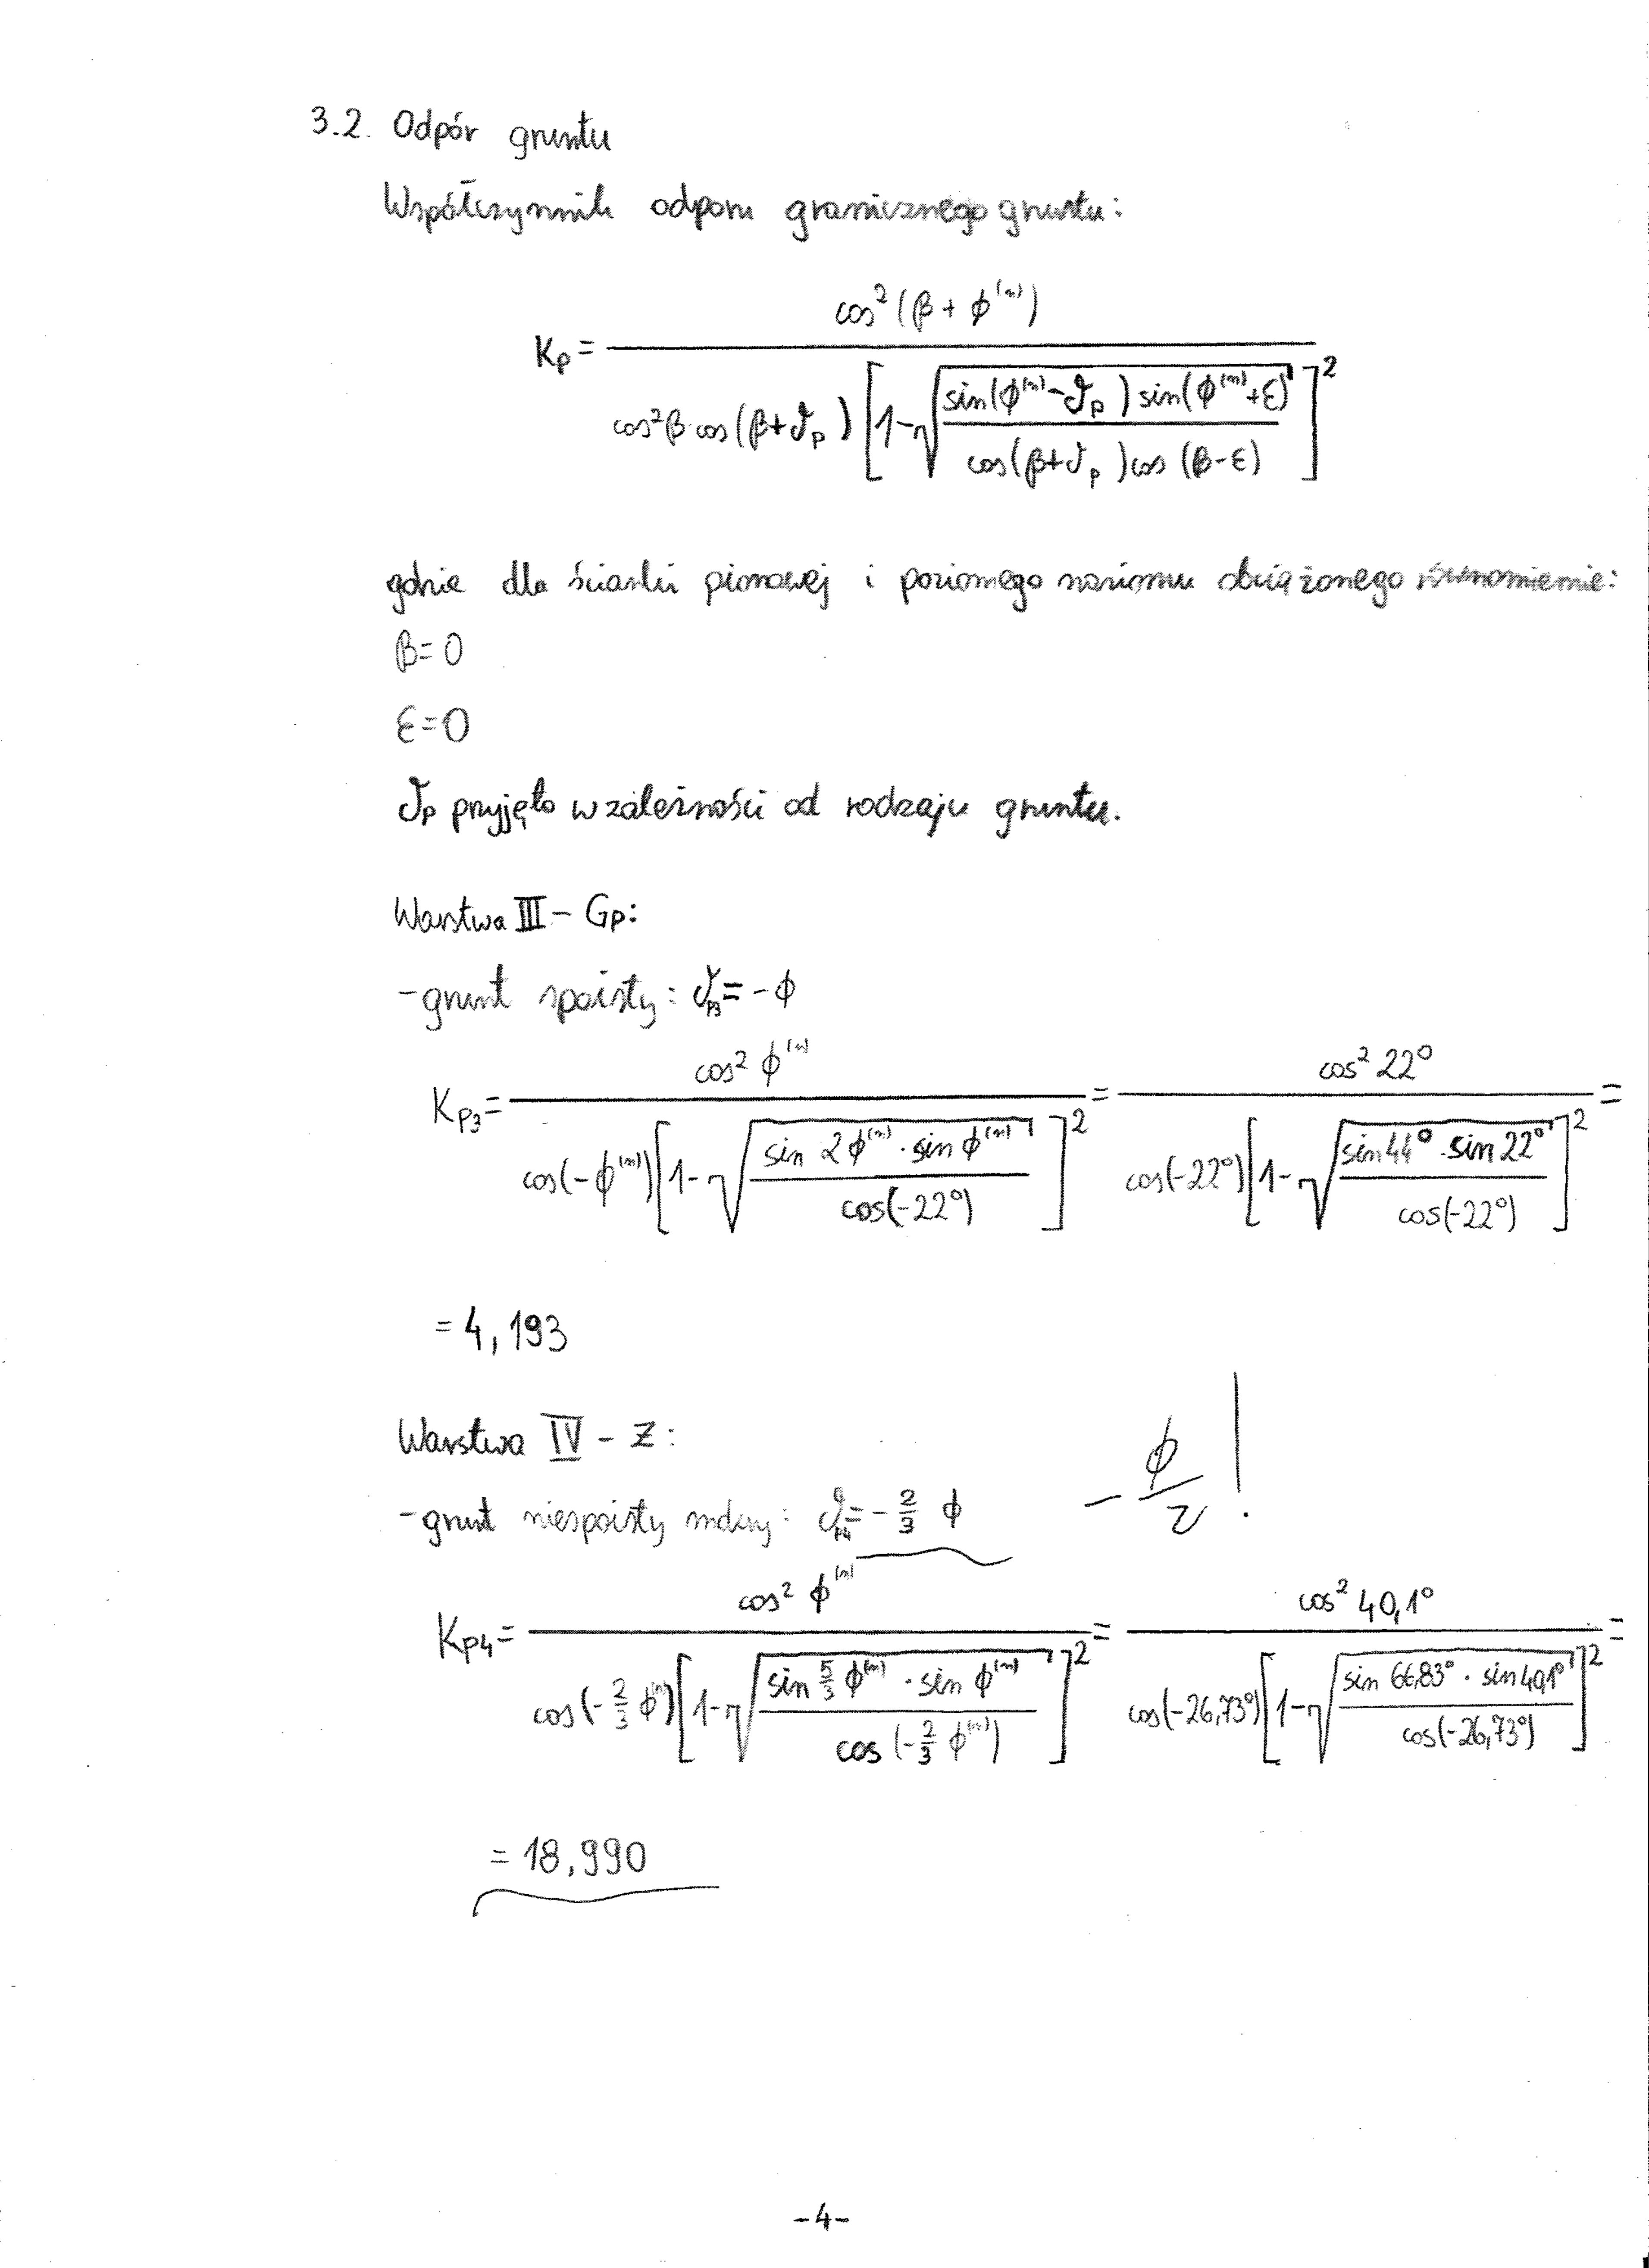 3.2. Odpór gruntu
Współczynnik odporu granicznego gruntu:
Kp = cos²(β + ϕ⁽ⁿ⁾) / cos²β cos(β+δp) [1 - √(sin(ϕ⁽ⁿ⁾-δp) sin(ϕ⁽ⁿ⁾+ε) / cos(β+δp) cos(β-ε))]²
gdzie dla ścianki pionowej i poziomego naziomu obciążonego równomiernie:
β=0
ε=0
δp przyjęto w zależności od rodzaju gruntu.
Warstwa III - Gp:
- grunt spoisty: δp3 = -ϕ
Kp3 = cos² ϕ⁽ⁿ⁾ / cos(-ϕ⁽ⁿ⁾) [1 - √(sin 2ϕ⁽ⁿ⁾ · sin ϕ⁽ⁿ⁾ / cos(-22°))]² = cos² 22° / cos(-22°) [1 - √(sin 44° · sin 22° / cos(-22°))]² =
= 4,193
Warstwa IV - Ż:
- ϕ/2 !
- grunt niespoisty mokry: δp4 = - 2/3 ϕ
Kp4 = cos² ϕ⁽ⁿ⁾ / cos(-2/3 ϕ⁽ⁿ⁾) [1 - √(sin 5/3 ϕ⁽ⁿ⁾ · sin ϕ⁽ⁿ⁾ / cos(-2/3 ϕ⁽ⁿ⁾))]² = cos² 40,1° / cos(-26,73°) [1 - √(sin 66,83° · sin 40,1° / cos(-26,73°))]² =
= 18,990
-4-